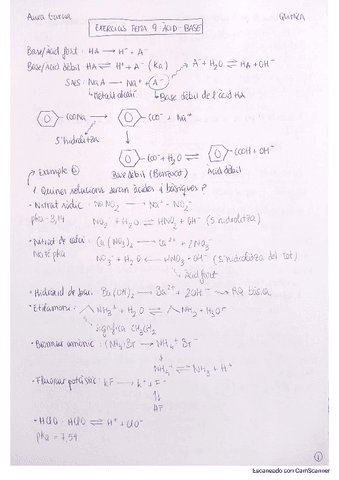 Aura Garcia
Química
EXERCICIS TEMA 9: ÀCID-BASE
Base/Àcid fort: HA → H⁺ + A⁻
Base/Àcid dèbil: HA ⇌ H⁺ + A⁻ (Ka)
A⁻ + H₂O ⇌ HA + OH⁻
SALS: NaA → Na⁺ + A⁻
↳ Metall alcalí
↳ Base dèbil de l'àcid HA
COONa → COO⁻ + Na⁺
S'hidrolitza
COO⁻ + H₂O ⇌ COOH + OH⁻
Base dèbil (Benzoat)
Àcid dèbil
Exemple
1. Quines solucions seran àcides i bàsiques?
• Nitrit sòdic: NaNO₂ → Na⁺ + NO₂⁻
pka = 3,14
NO₂⁻ + H₂O ⇌ HNO₂ + OH⁻ (S'hidrolitza)
• Nitrat de calci: Ca(NO₃)₂ → Ca²⁺ + 2NO₃⁻
No té pka
NO₃⁻ + H₂O ⟵ HNO₃ + OH⁻ (S'hidrolitza del tot)
↳ àcid fort
• Hidròxid de bari: Ba(OH)₂ → Ba²⁺ + 2OH⁻ → RQ bàsica
NH₃⁺ + H₂O ⇌ NH₂ + H₃O⁺
significa CH₃CH₂
• Bromur amònic: (NH₄)Br → NH₄⁺ + Br⁻
NH₄⁺ ⇌ NH₃ + H⁺
• Fluorur potàssic: KF → K⁺ + F⁻
HF
• HClO: HClO ⇌ H⁺ + ClO⁻
pka = 7,54
1
Escaneado con CamScanner